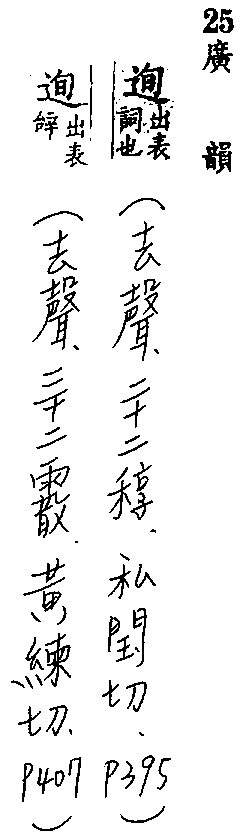 25廣韻
迿出表詞也(去聲、二十二稕、私閏切、P395)
迿出表辝(去聲、三十二霰、黃練切、P407)